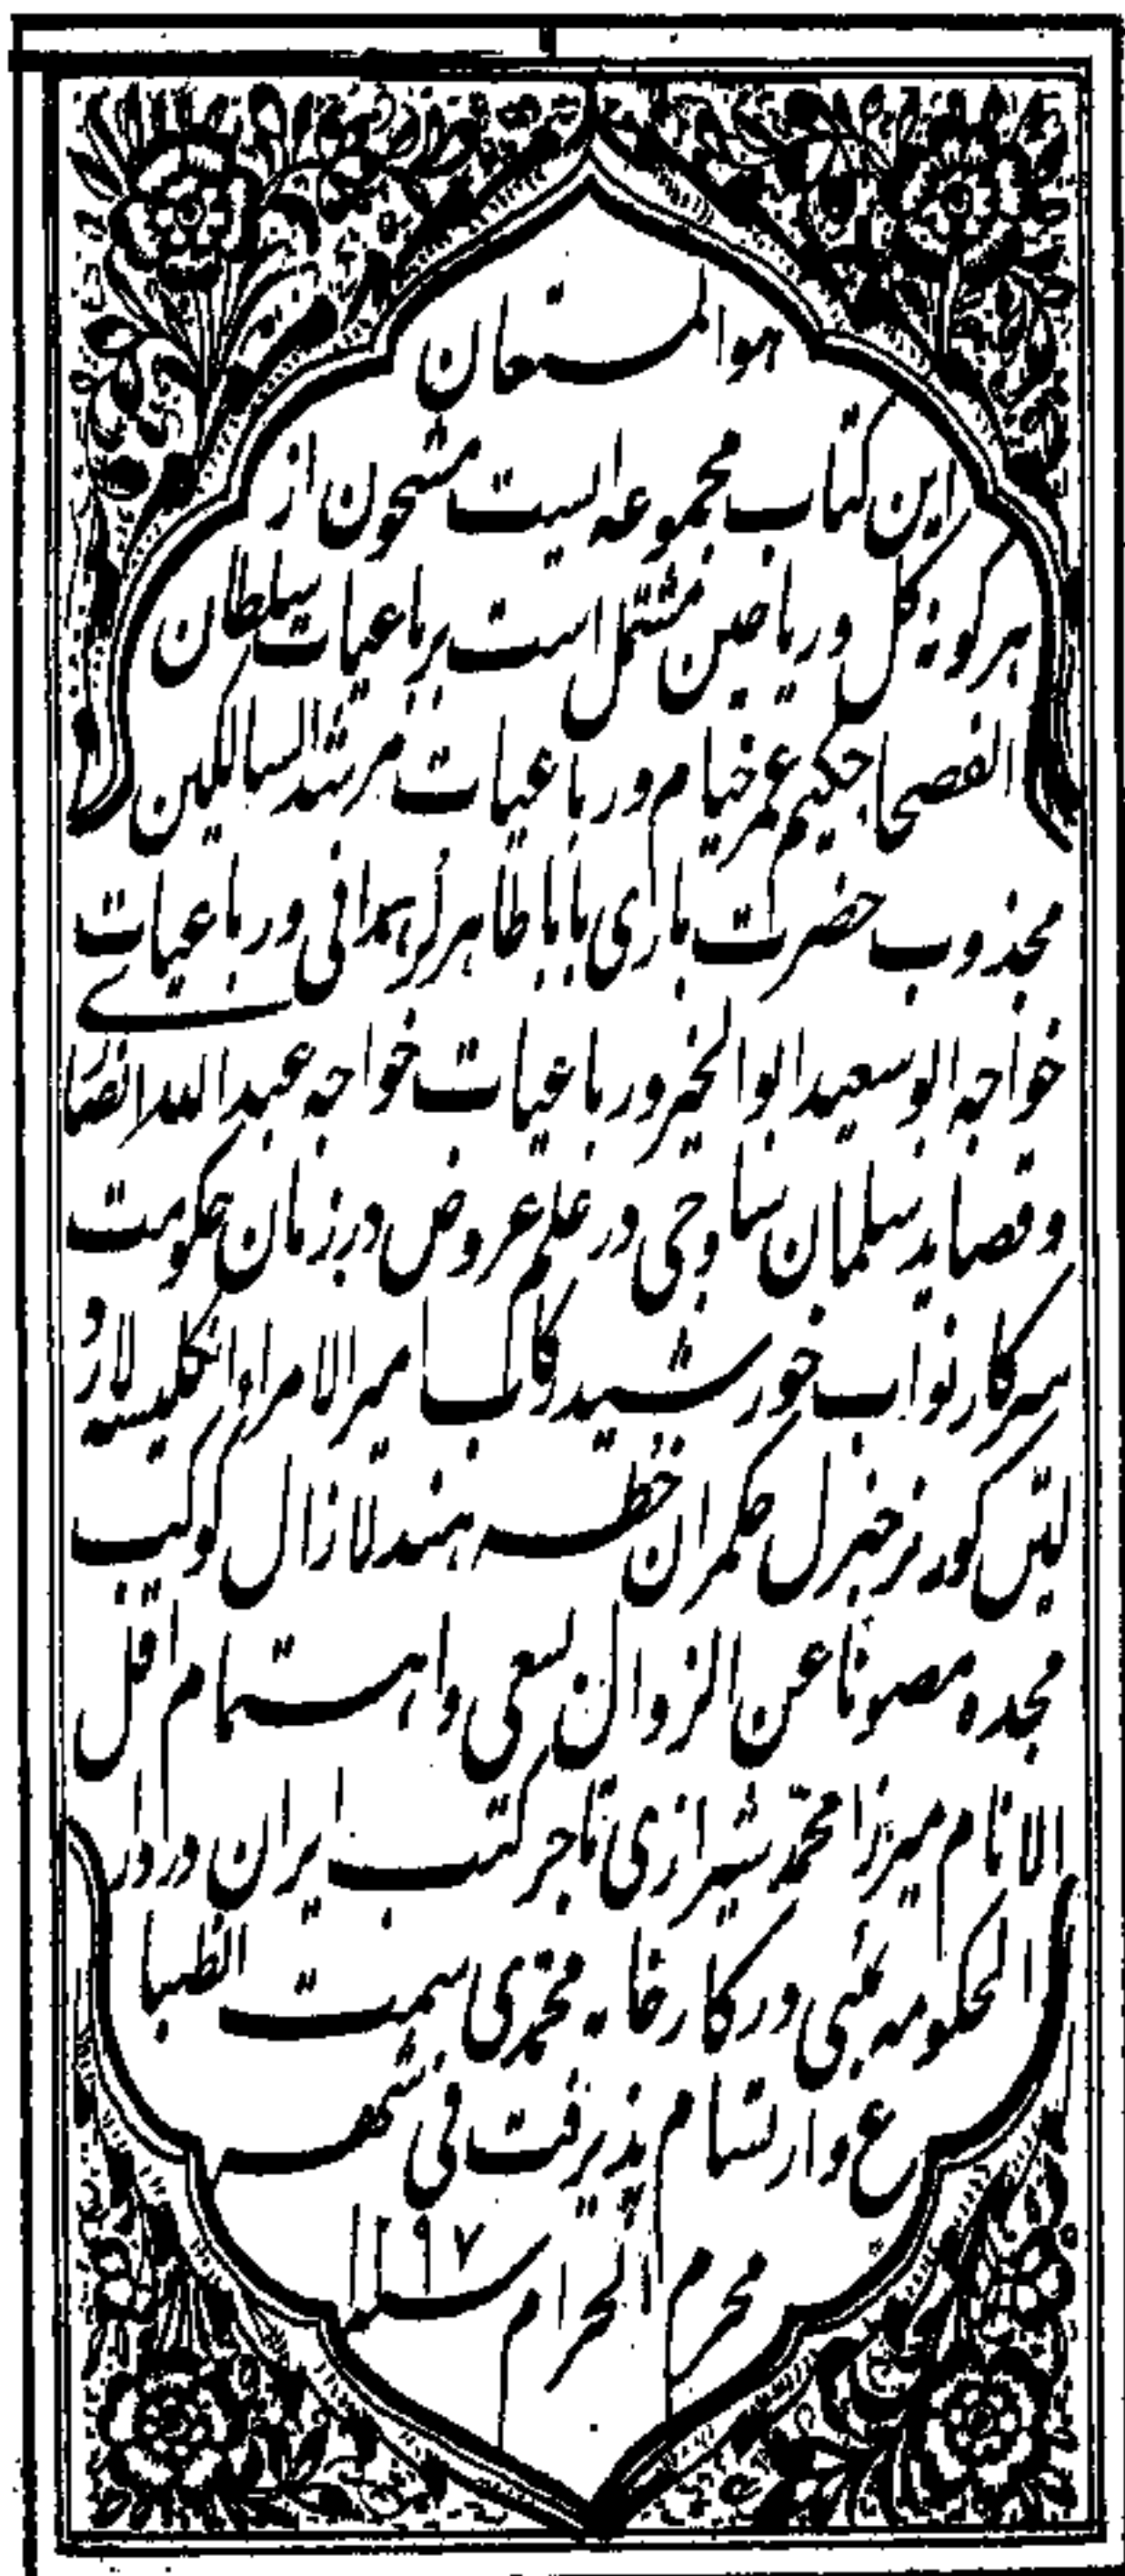 هوالمستعان
این کتاب مجموعه ایست مشحون از
هرگونه گل و ریاحین مشتمل است برباعیات سلطان
الفصحا حکیم عمر خیام و رباعیات مرشد السالکین
مجذوب حضرت باری بابا طاهر لر همدانی و رباعیات
خواجه ابو سعید ابو الخیر و رباعیات خواجه عبد الله انصاری
و قصاید سلمان ساوجی در علم عروض در زمان حکومت
سرکار نواب خورشید رکاب امیر الامراء انگلیسیه لارد
لتن گورنر جنرل حکمران خطه هند لا زال کوکب
مجده مصونا عن الزوال بسعی و اهتمام اقل
الانام میرزا محمد شیرازی تاجر کتب ایران در دار
الحکومه بمبئی در کارخانه محمدی سمت انطبا
ع و ارتسام پذیرفت فی شهر
محرم الحرام سنه ۱۲۹۷